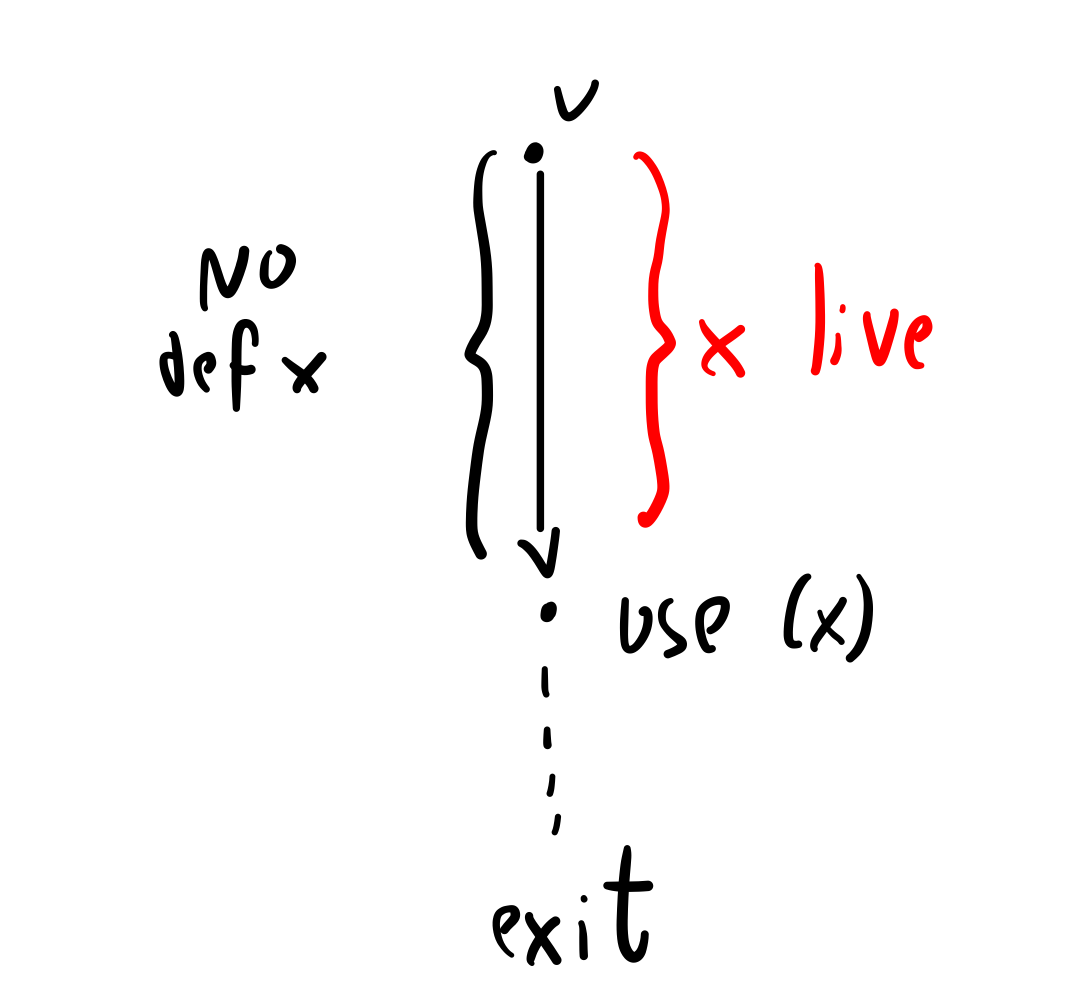 v
NO
def x
x live
use (x)
exit